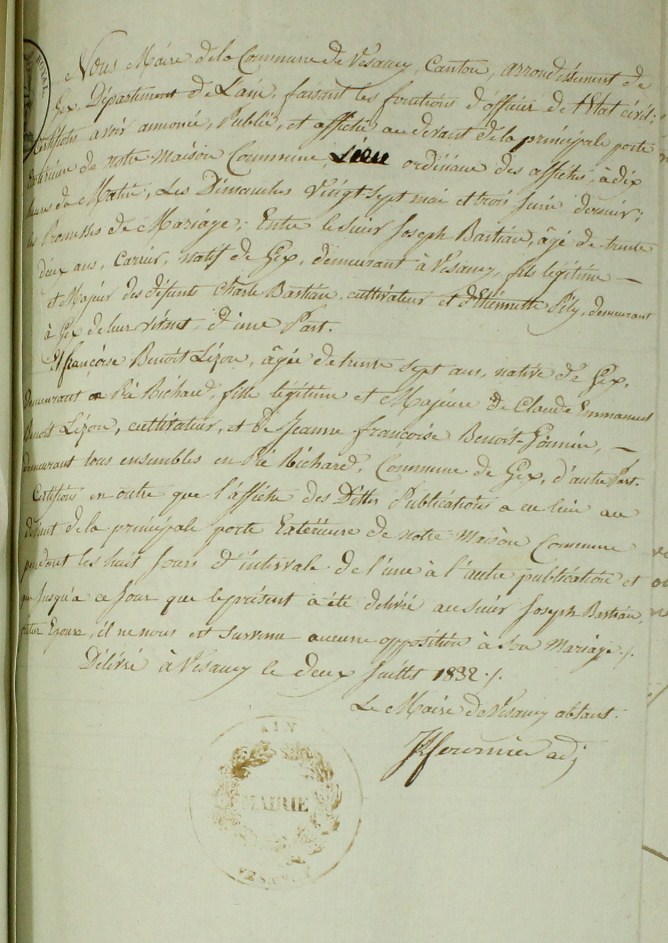 Nous Maire de la Commune de Vesancy, Canton, arrondissement de
Gex, Département de L'ain, faisant les fonctions d'officier de l'Etat civil;
Certifions avoir annoncé, Publié, et affiché au devant de la principale porte
Extérieure de notre Maison Commune Lieu ordinaire des affiches, à dix
heures du Matin, Les Dimanches vingt sept mai et trois Juin dernier;
les Promesses de Mariage; Entre le sieur Joseph Bastian, âgé de trente
deux ans, Carrier, natif de Gex, demeurant à Vesancy, fils légitime —
et Majeur des défunts Charle Bastian, cultivateur et d'Etiennette Pély, demeurant
à Gex de leur vivant; d'une Part.
Et françoise Benoit Lizon, âgée de trente sept ans, native de Gex,
Demeurant en Pré Bichard, fille légitime et Majeure de Claude Emmanuel
Benoit Lizon, cultivateur, et de Jeanne françoise Benoit-Gonnin, —
demeurant tous ensembles en Pré Bichard, Commune de Gex, d'autre Part.
Certifions en outre que l'affiche des Dittes Publications a eu lieu au
devant de la principale porte Extérieure de notre Maison Commune
pendant les huit Jours d'intervale de l'une à l'autre publication et
que Jusqu'a ce Jour que le présent a été délivré au sieur Joseph Bastian,
futur Epoux, il ne nous est survenu aucune opposition à son Mariage ./.
Délivré à Vesancy le deux Juillet 1832 ./.
Le Maire de Vesancy absant.
fournier adj
AIN
MAIRIE
VESANCY